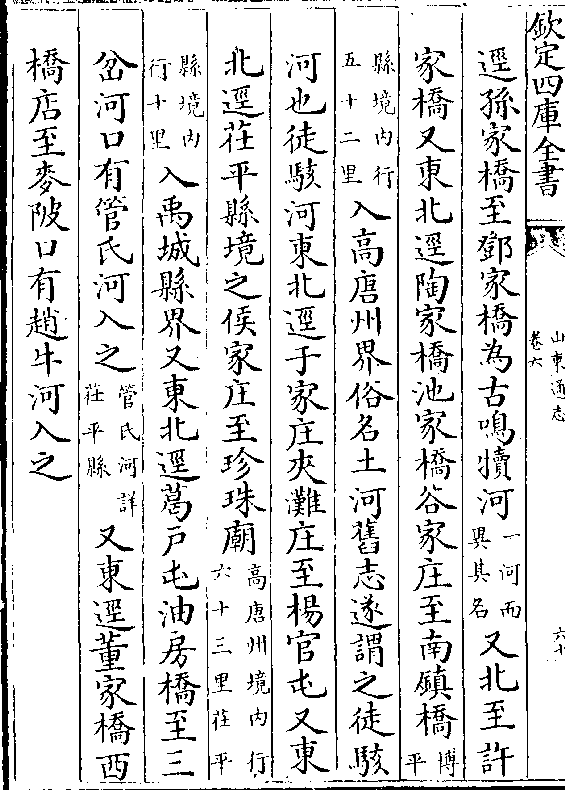 欽定四庫全書
山東通志
卷六
六十
逕孫家橋至鄧家橋為古鳴犢河一河而異其名又北至許
家橋又東北逕陶家橋池家橋谷家庄至南鎮橋博平
縣境内行五十二里入高唐州界俗名土河舊志遂謂之徒駭
河也徒駭河東北逕于家庄夾灘庄至楊官屯又東
北逕茌平縣境之侯家庄至珍珠廟高唐州境内行六十三里茌平
縣境内行十里入禹城縣界又東北逕葛戶屯油房橋至三
岔河口有管氏河入之管氏河詳茌平縣又東逕董家橋西
橋店至麥陂口有趙牛河入之